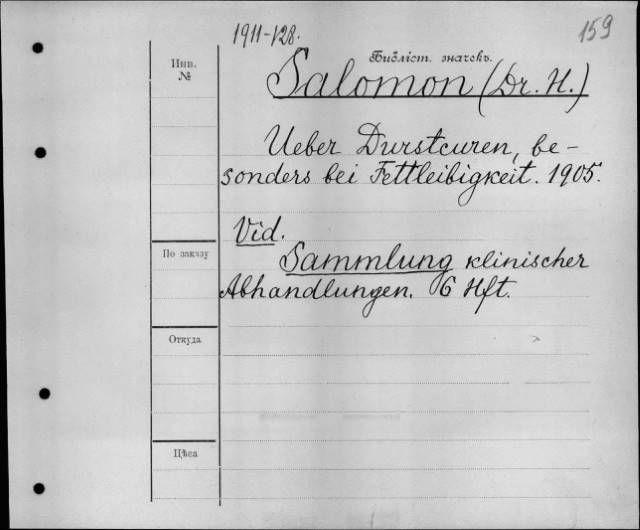 1911-128.
159
Инв.
№
Библіот. значекъ.
Salomon (Dr. H.)
Ueber Durstcuren, be-
sonders bei Fettleibigkeit. 1905.
Vid.
По заказу
Sammlung klinischer
Abhandlungen. 6 Hft.
Откуда
Цѣна